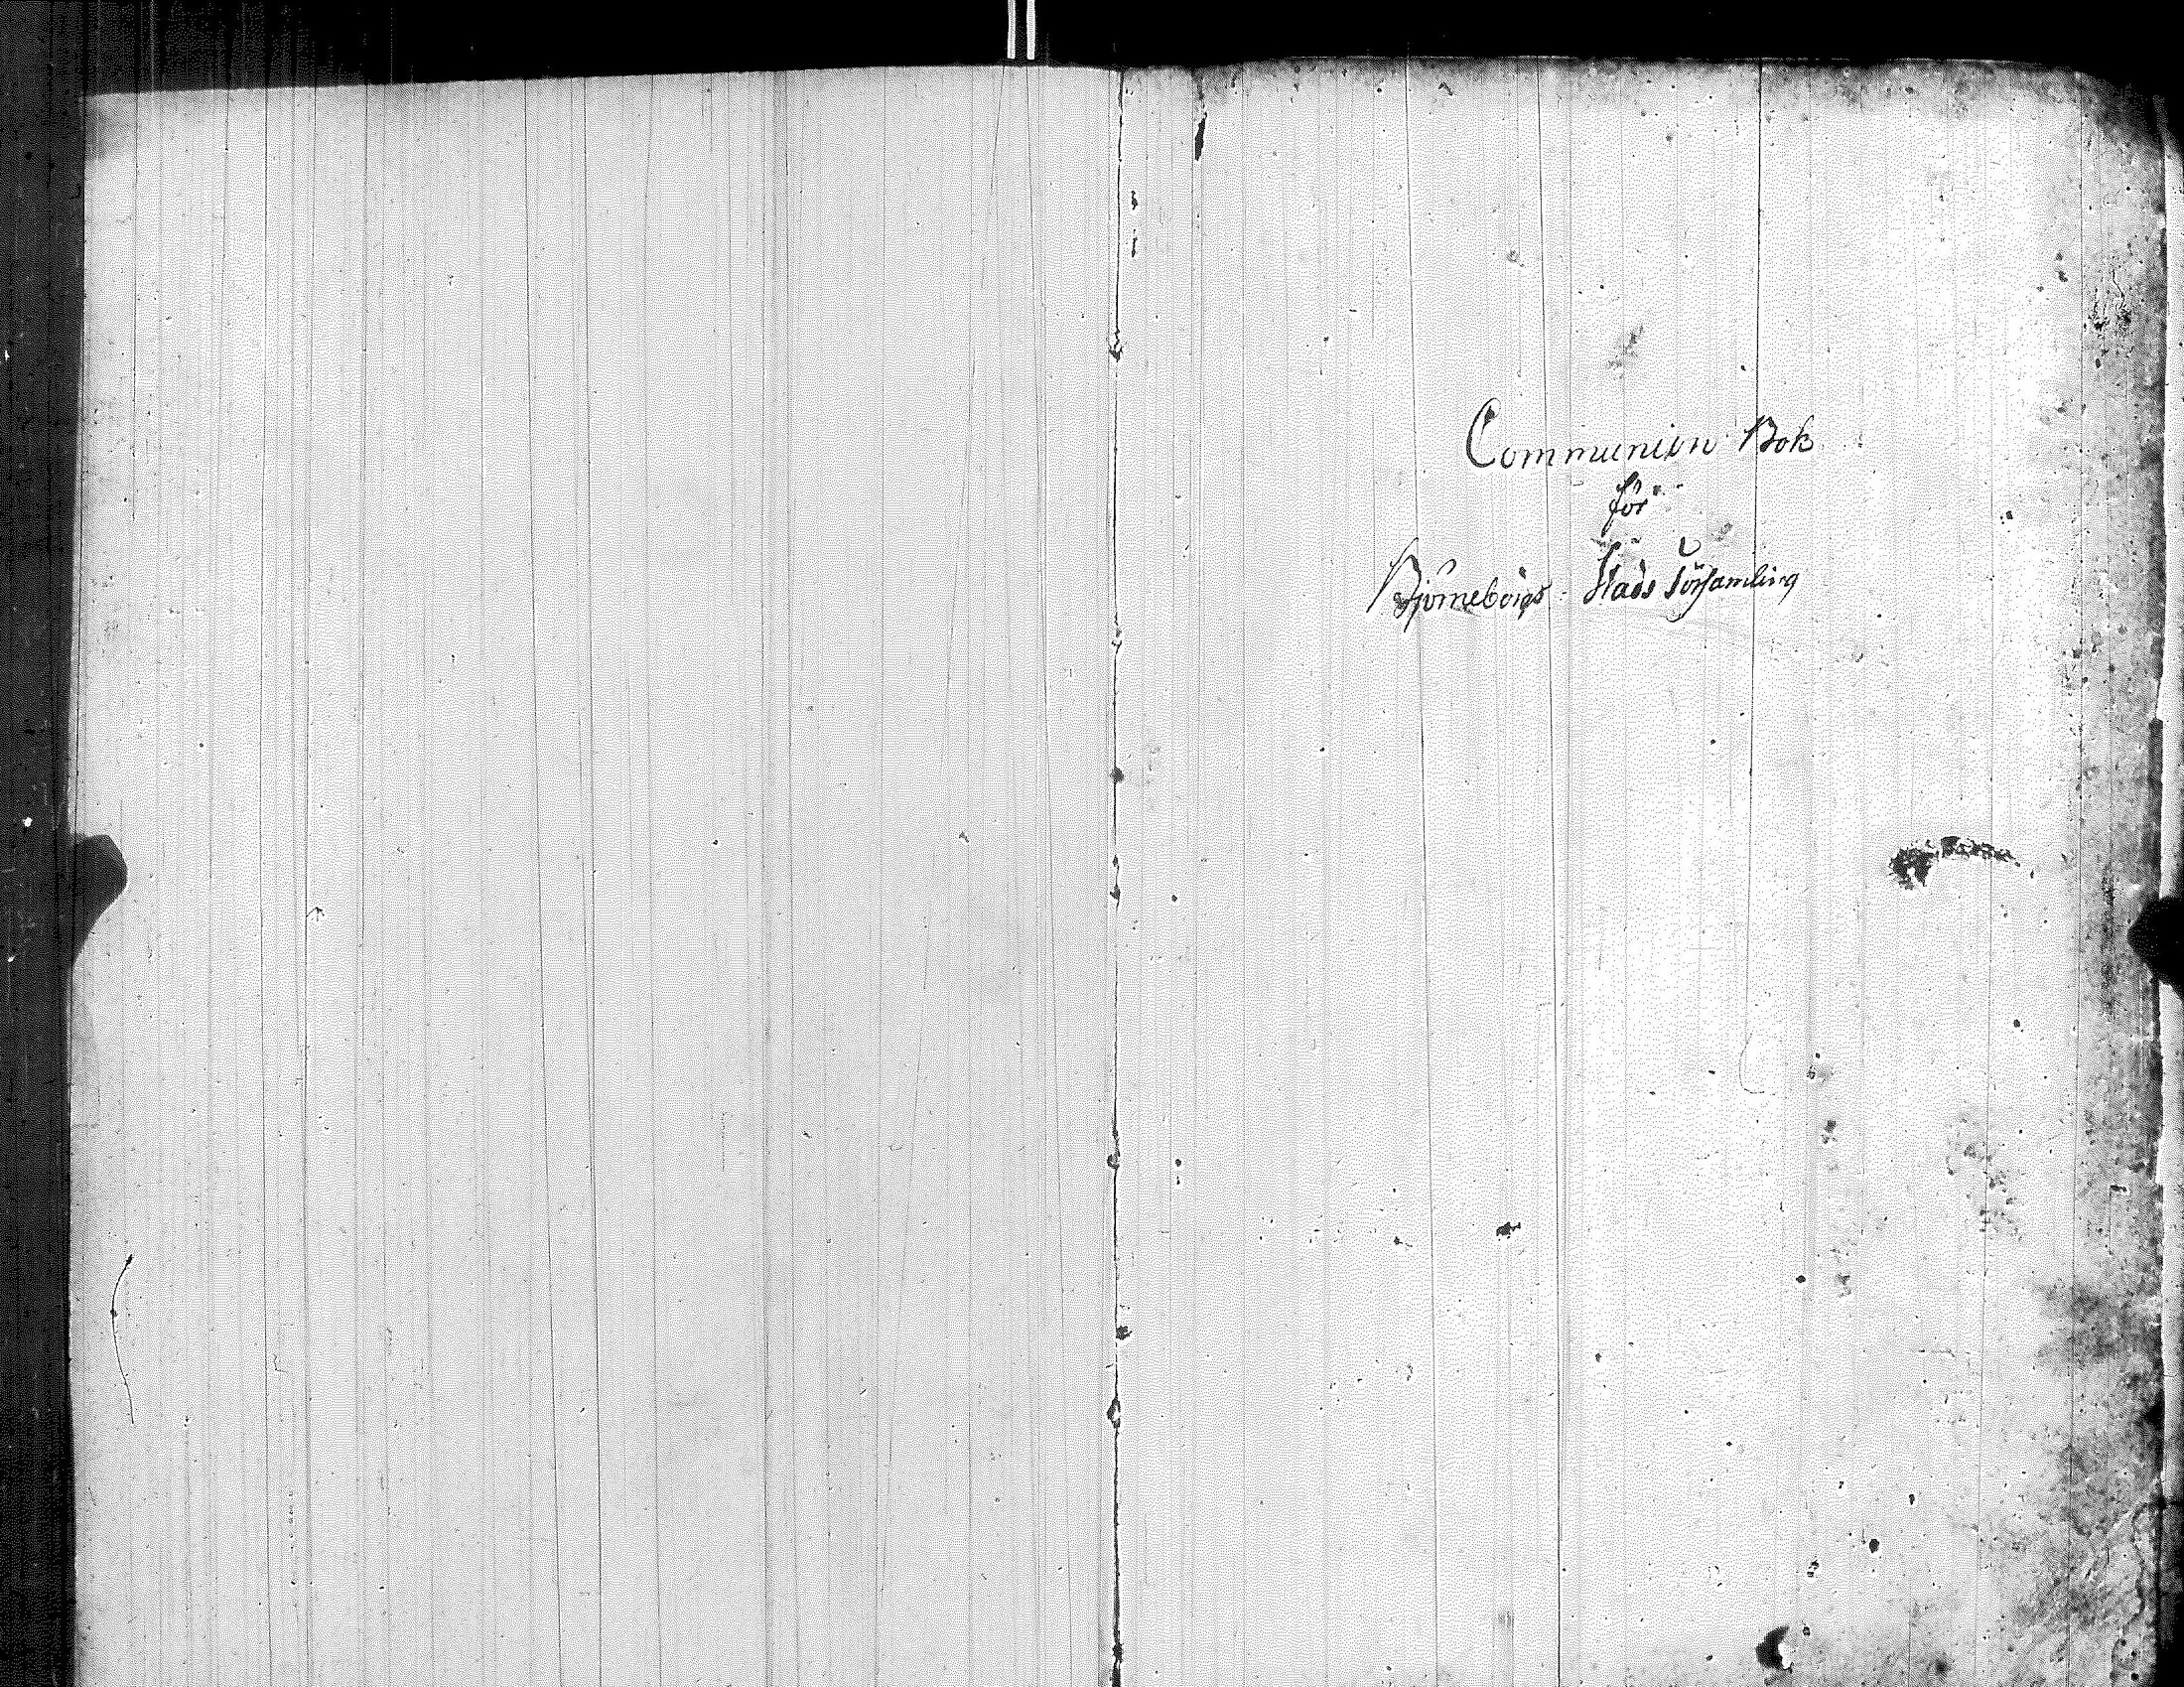 Communion Bok
för
Björneborgs Stads Församling